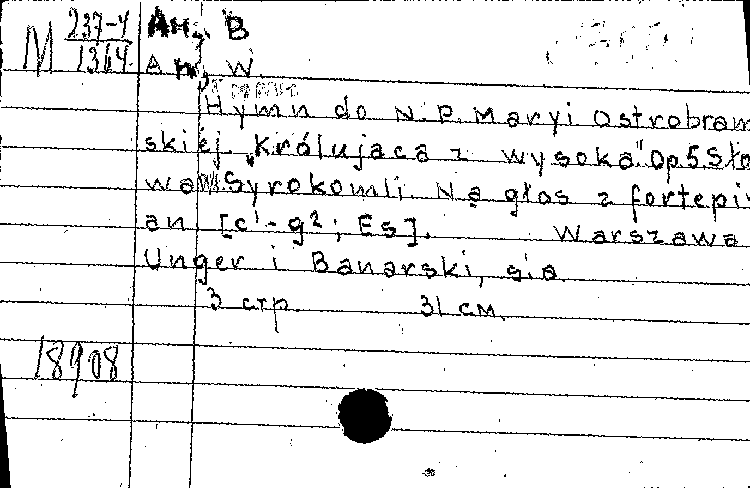 М 237-4/1364
Ан., В
An, W.
Hymn do N. P. Maryi Ostrobram
skiéj. „Królujaca z wysoka" Op 5. Sło
wa W Syrokomli. Na głos z fortepi
an [c¹-g²; Es]. Warszawa
Unger i Banarski, s.a.
3 стр. 31 см.
18908